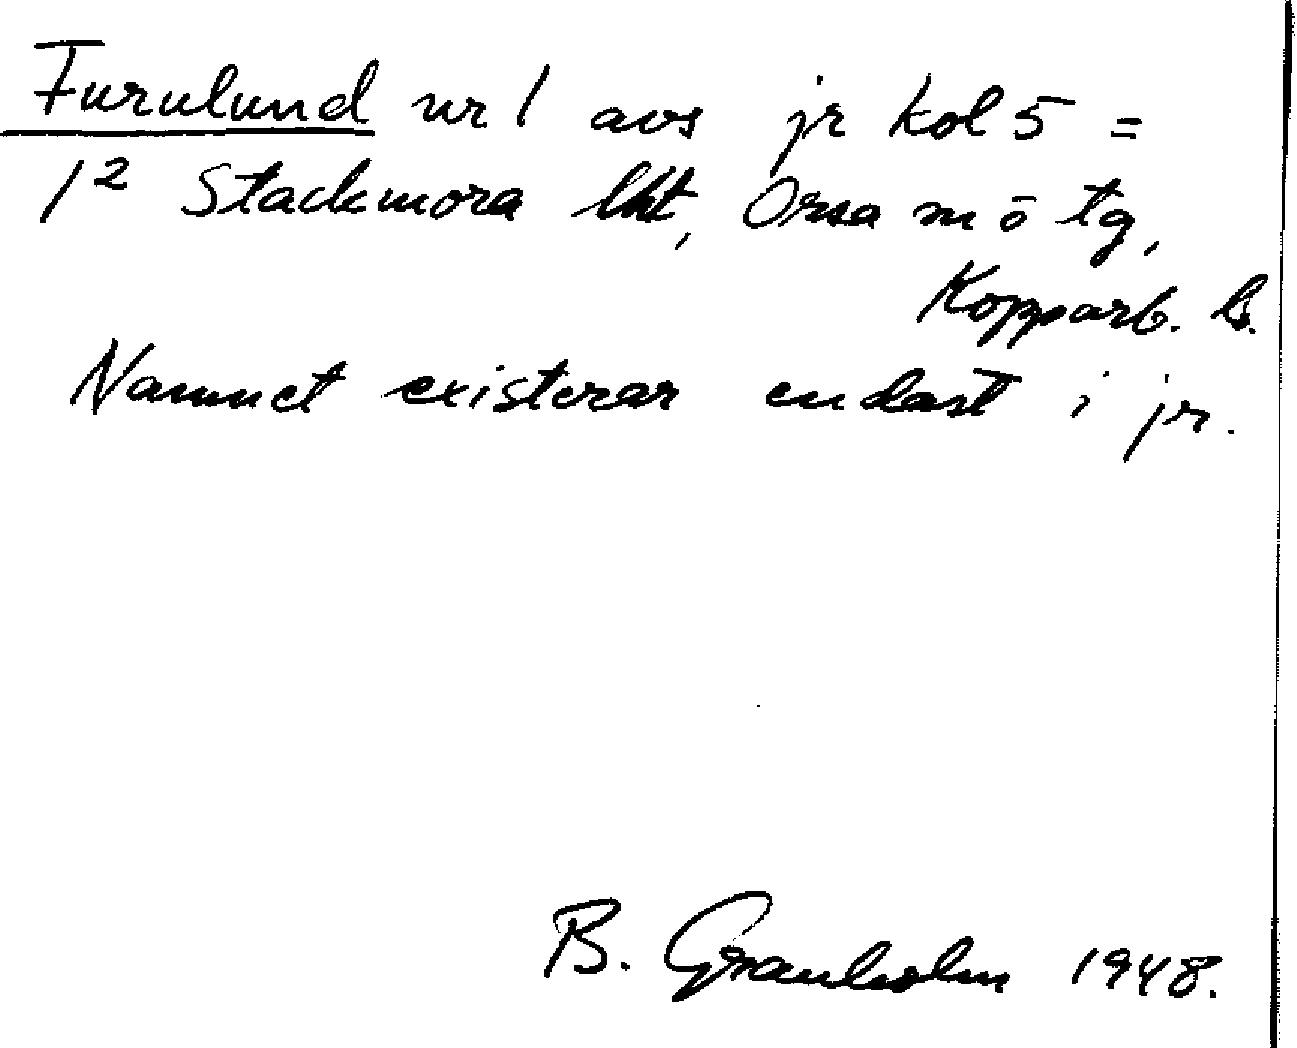 Furulund nr 1 avs jr kol 5 =
1² Stackmora lht, Orsa m ö tg,
Kopparb. l.
Namnet existerar endast i jr.
B. Granholm 1948.